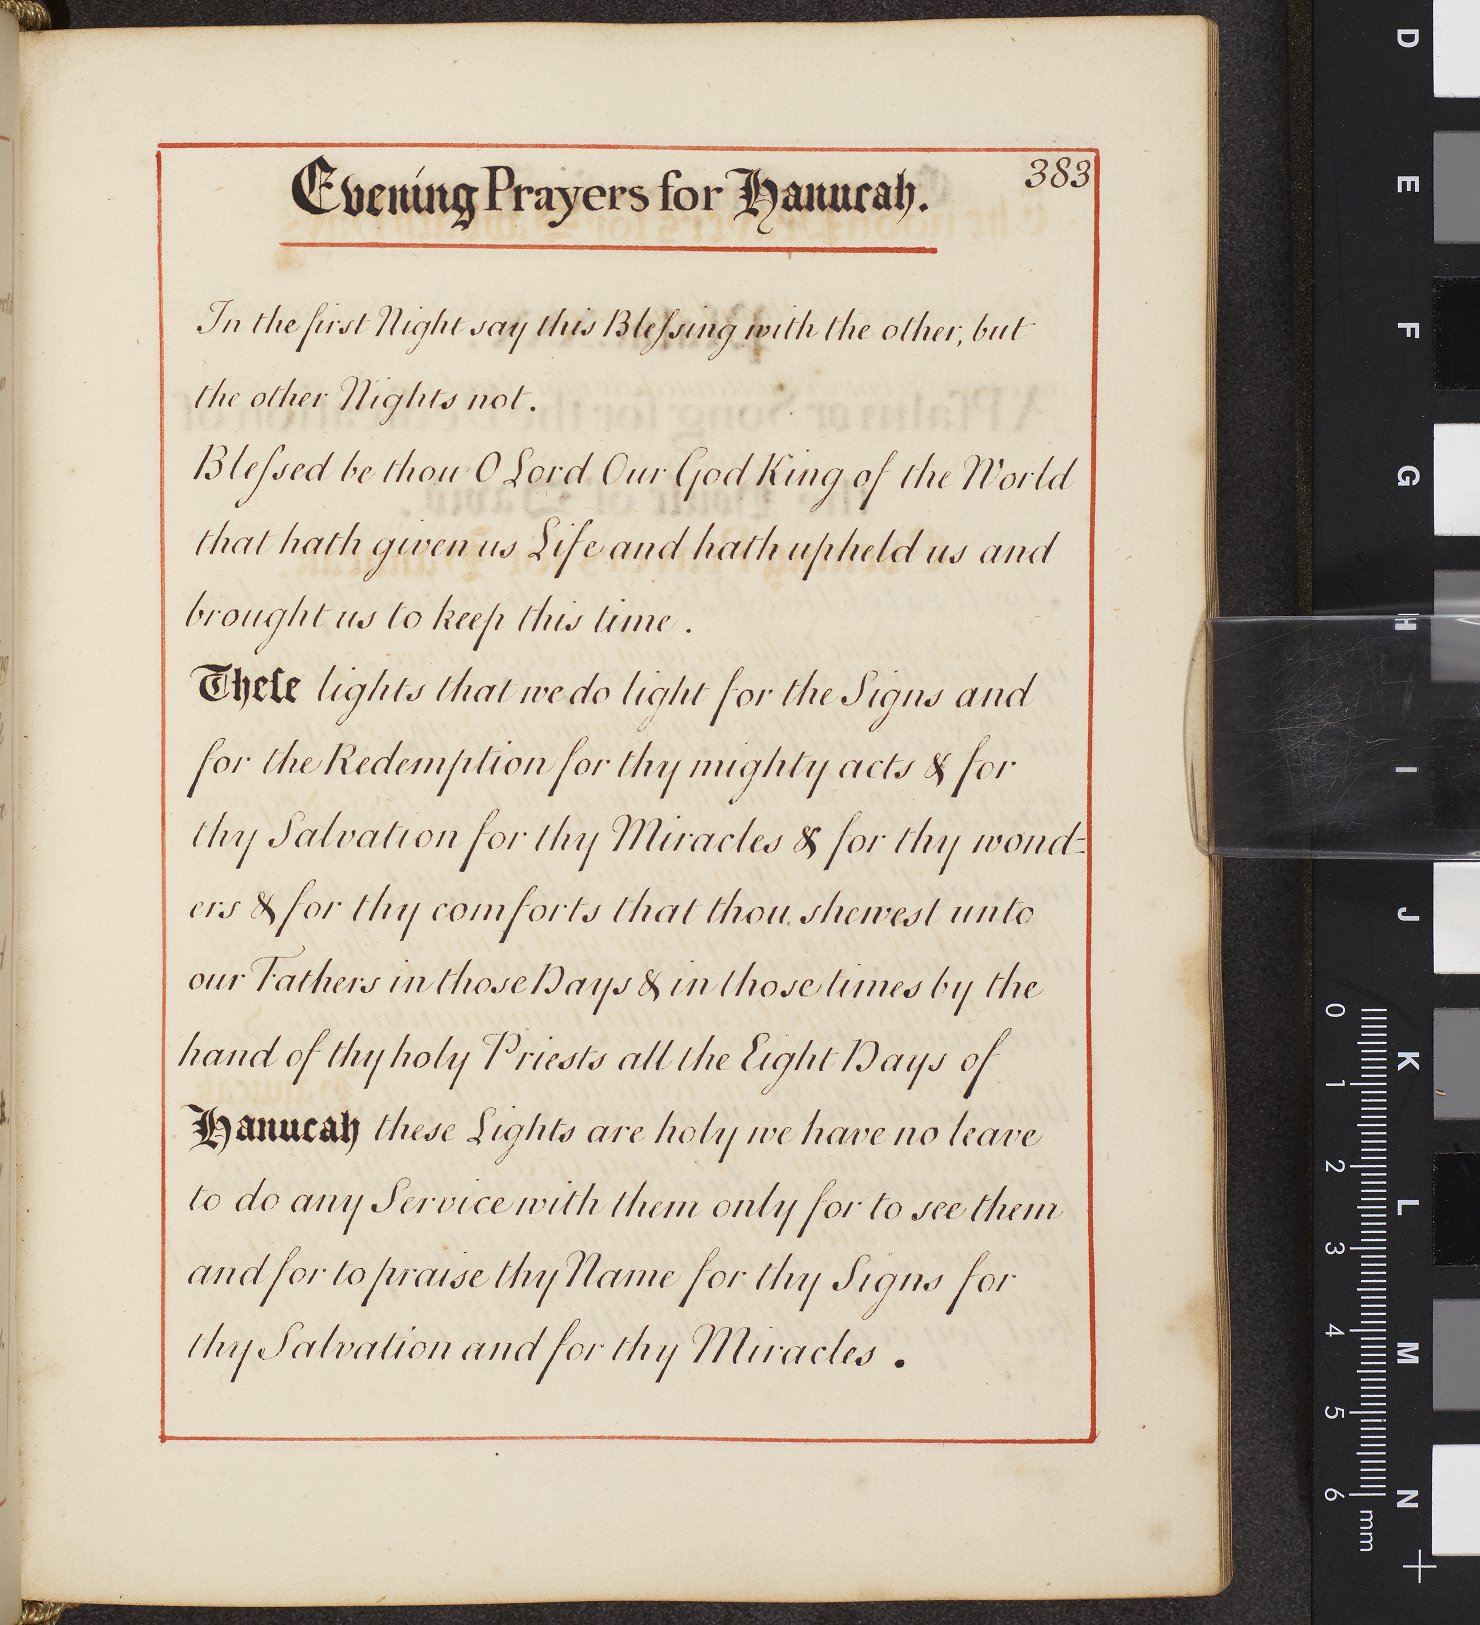 383
Evening Prayers for Hanucah.
In the first Night say this Bleſsing with the other, but
the other Nights not.
Bleſsed be thou O Lord Our God King of the World
that hath given us Life and hath upheld us and
brought us to keep this time.
Theſe lights that we do light for the Signs and
for the Redemption for thy mighty acts & for
thy Salvation for thy Miracles & for thy wond=
ers & for thy comforts that thou shewest unto
our Fathers in those Days & in those times by the
hand of thy holy Priests all the Eight Days of
Hanucah these Lights are holy we have no leave
to do any Service with them only for to see them
and for to praise thy Name for thy Signs for
thy Salvation and for thy Miracles.
D
E
F
G
H
I
J
K
L
M
N
0
1
2
3
4
5
6
mm